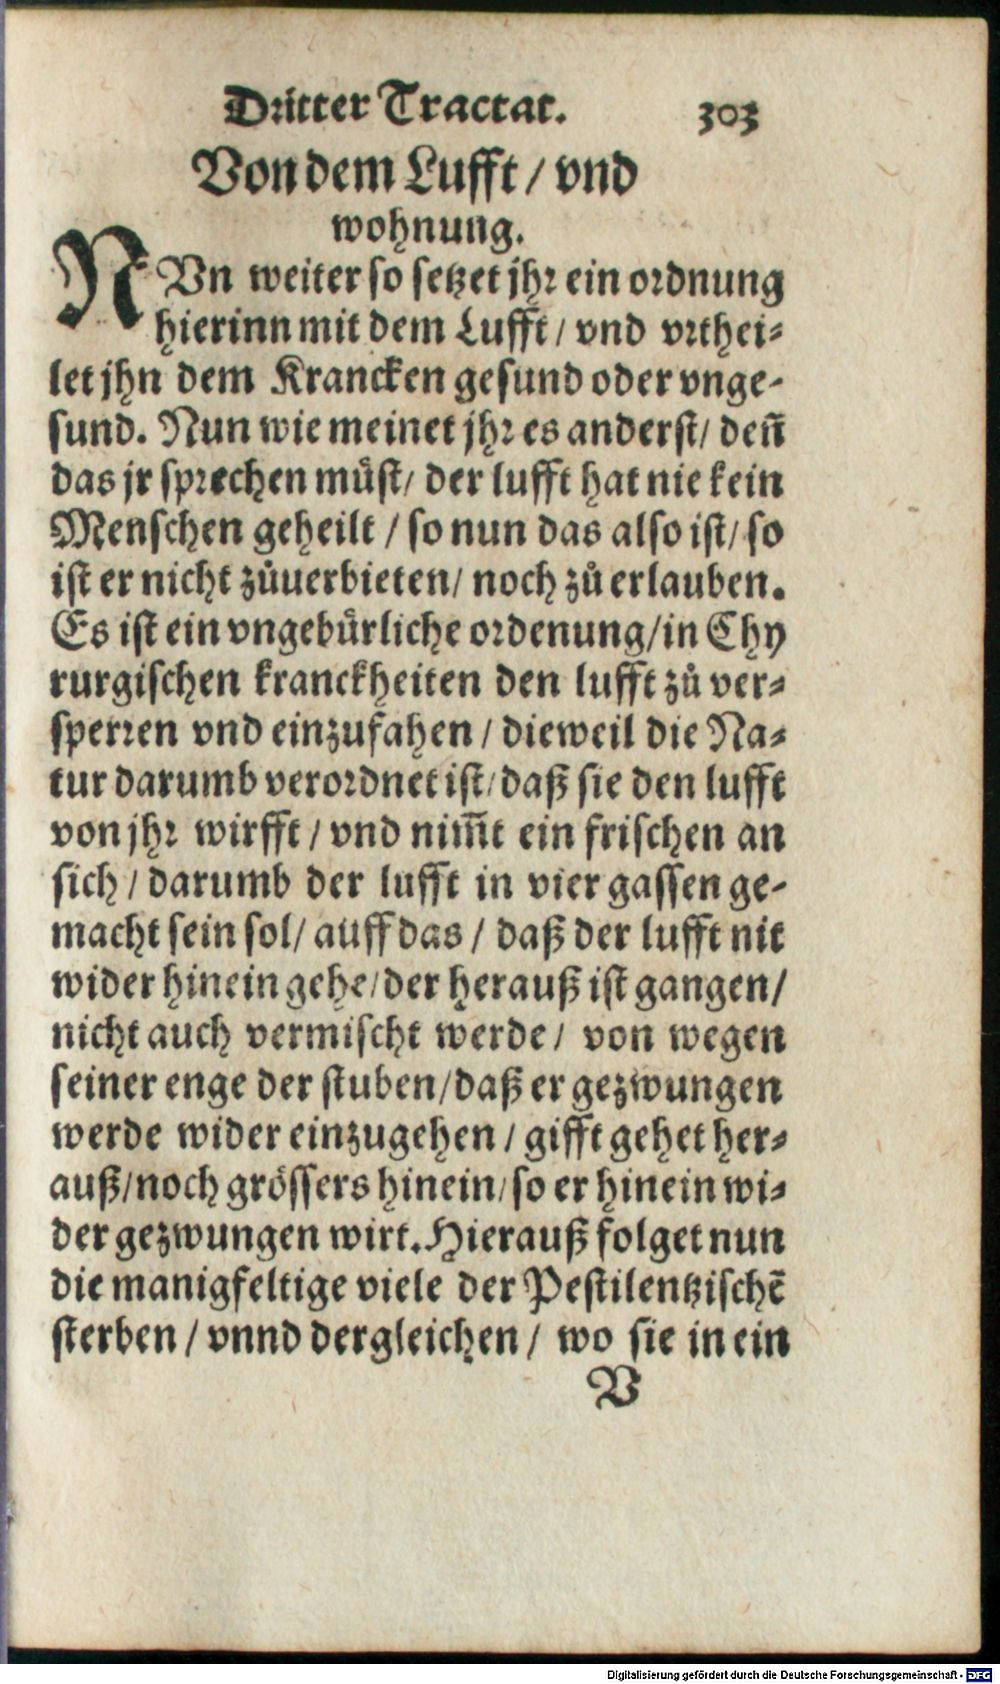 Dritter Tractat. 303
Von dem Lufft / vnd
wohnung.
NVn weiter so setzet jhr ein ordnung
hierinn mit dem Lufft / vnd vrthei⸗
let jhn dem Krancken gesund oder vnge⸗
sund. Nun wie meinet jhr es anderst / deñ
das jr sprechen müst / der lufft hat nie kein
Menschen geheilt / so nun das also ist / so
ist er nicht zůuerbieten / noch zů erlauben.
Es ist ein vngebürliche ordenung / in Chy
rurgischen kranckheiten den lufft zů ver⸗
sperren vnd einzufahen / dieweil die Na⸗
tur darumb verordnet ist / daß sie den lufft
von jhr wirfft / vnd nim̃t ein frischen an
sich / darumb der lufft in vier gassen ge⸗
macht sein sol / auff das / daß der lufft nit
wider hinein gehe / der herauß ist gangen /
nicht auch vermischt werde / von wegen
seiner enge der stuben / daß er gezwungen
werde wider einzugehen / gifft gehet her⸗
auß / noch grössers hinein / so er hinein wi⸗
der gezwungen wirt. Hierauß folget nun
die manigfeltige viele der Pestilentzischẽ
sterben / vnnd dergleichen / wo sie in ein
V
Digitalisierung gefördert durch die Deutsche Forschungsgemeinschaft - DFG